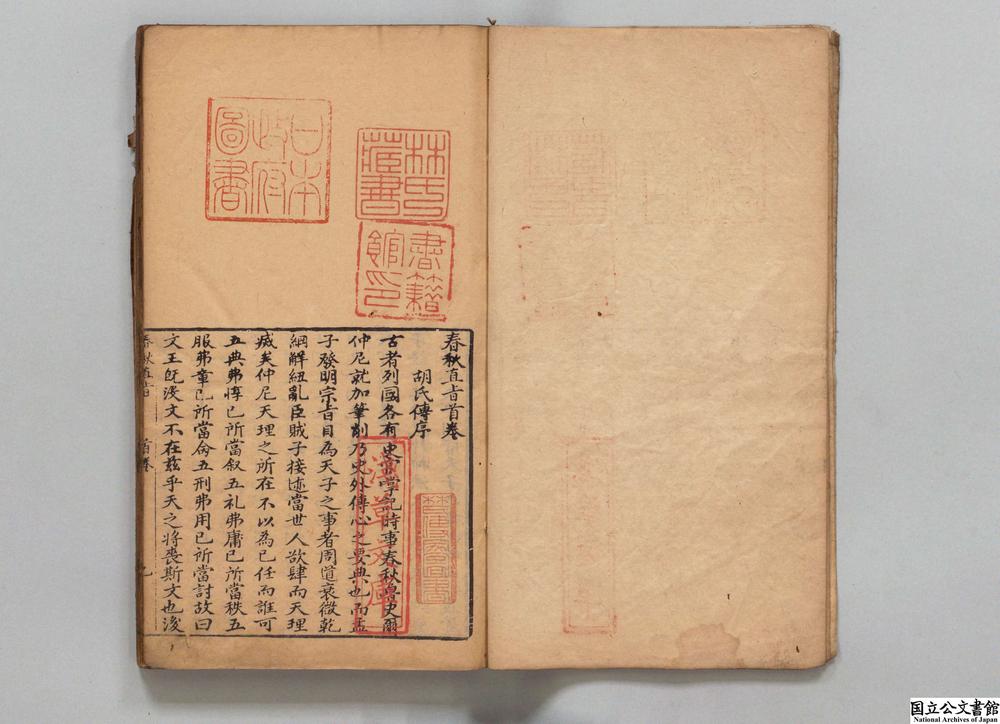 春秋直㫖首卷
胡氏傳序
古者列國各有史官掌記時事春秋魯史爾
仲尼就加筆削乃史外傳心之要典也而孟
子發明宗㫖目為天子之事者周道衰微乾
綱解紐亂臣賊子接迹當世人欲肆而天理
滅矣仲尼天理之所在不以為已任而誰可
五典弗惇已所當叙五礼弗庸已所當秩五
服弗章已所當命五刑弗用已所當討故曰
文王旣没文不在兹乎天之將喪斯文也後
春秋直㫖
首卷
林氏藏書
日本政府圖書
書籍館印
淺草文庫
国立公文書館
National Archives of Japan